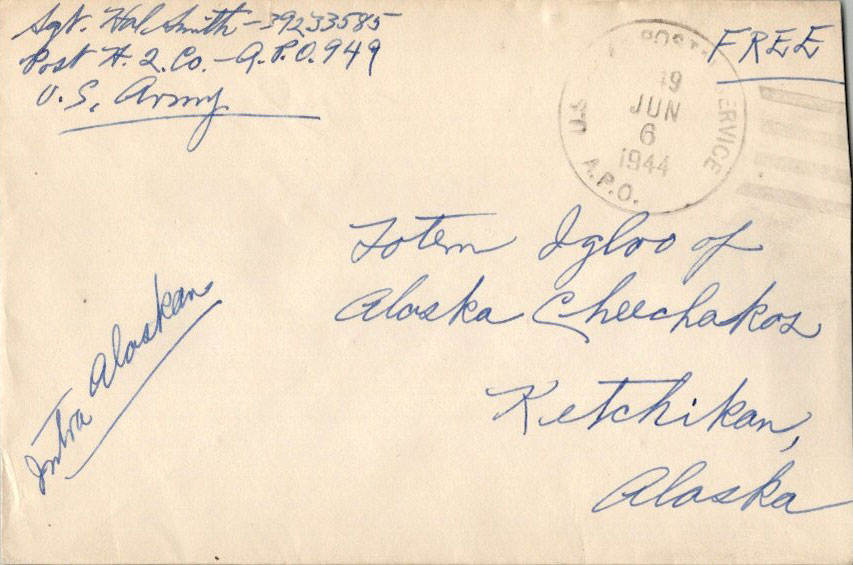 Sgt. Hal Smith - 39233585
Post H. Q. Co. - A.P.O. 949
U.S. Army
FREE
POSTAL SERVICE
JUN
6
1944
A.P.O.
Totem Igloo of
Alaska Cheechakos
Ketchikan,
Alaska
Intra Alaskan